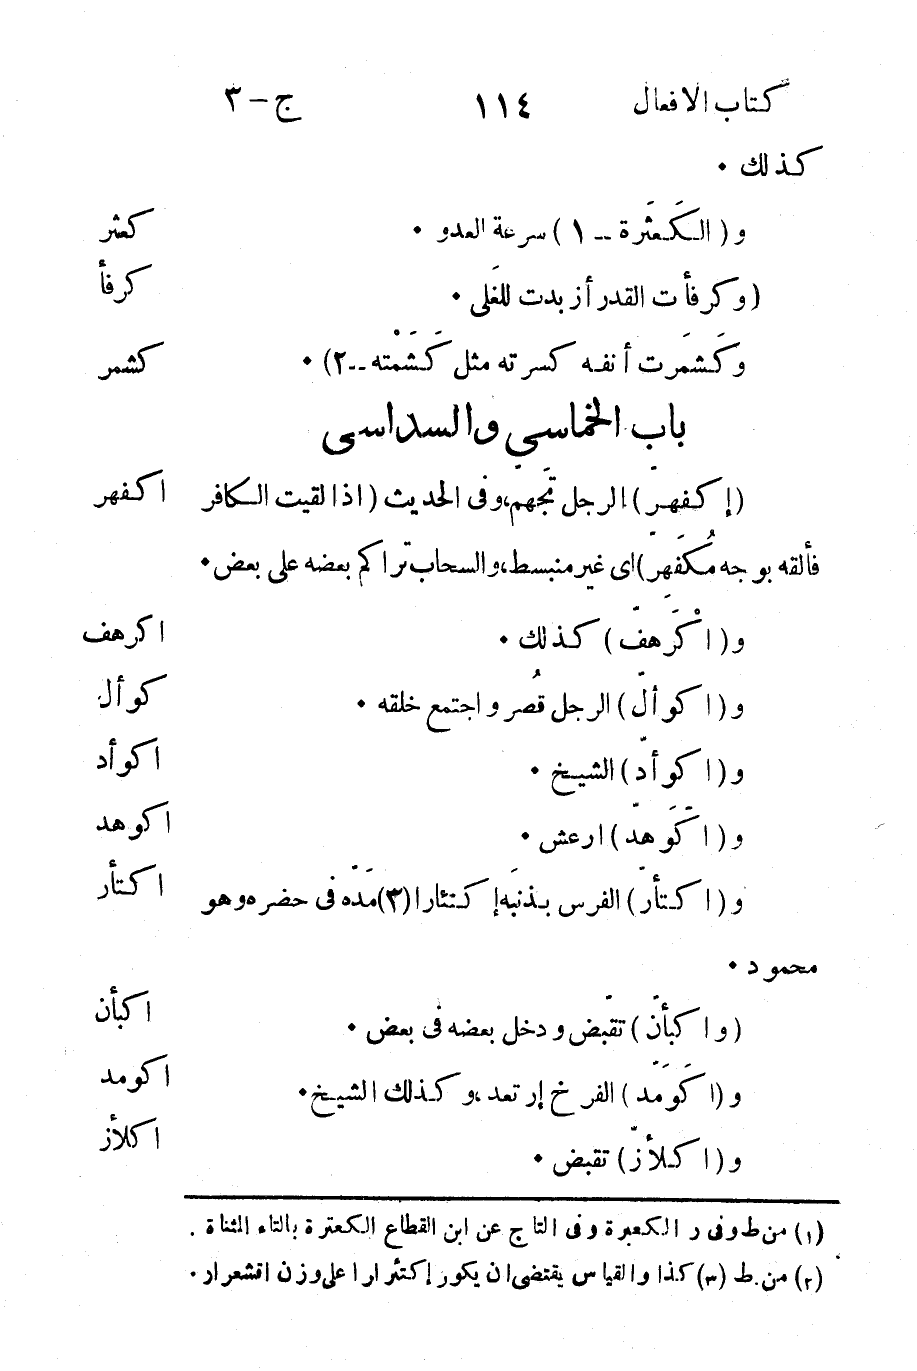 كتاب الافعال ١١٤ ج - ٣
كذلك .
و ( الكَعثَرة -- ١ ) سرعة العدو . كعثر
( وكرفأت القدر أزبدت للغَلى . كرفأ
وكَشمَرت أنفه كسرته مثل كَشَمْته -- ٢) . كشمر
باب الخماسي والسداسى
(إكفهرّ) الرجل تجَهمّ، وفى الحديث (اذا لقيت الكافر اكفهر
فألقه بوجه مُكفَهِرّ) اى غير منبسط، والسحاب تراكم بعضه على بعض .
و (اكْرَهفّ) كذلك . اكرهف
و (اكوألّ) الرجل قصُر واجتمع خلقه . كوأل
و (اكوأدّ) الشيخ . اكوأد
و (اكَّوَهدّ) ارعش . اكوهد
و (اكتأرّ) الفرس بذنَبه إكتئارا (٣) مَدّه فى حضره وهو اكتأر
محمود .
( و اكبأنّ) تقبّض ودخل بعضه فى بعض . اكبأن
و (اكَوَمَدّ) الفرخ إرتعد، وكذلك الشيخ . اكومد
و (اكلأزّ) تقبض . اكلأز
(١) من ط وفى ر الكعبرة وفى التاج عن ابن القطاع الكعترة بالتاء المثناة .
(٢) من ط (٣) كذا والقياس يقتضى ان يكون إكتئرارا على وزن اقشعرار .